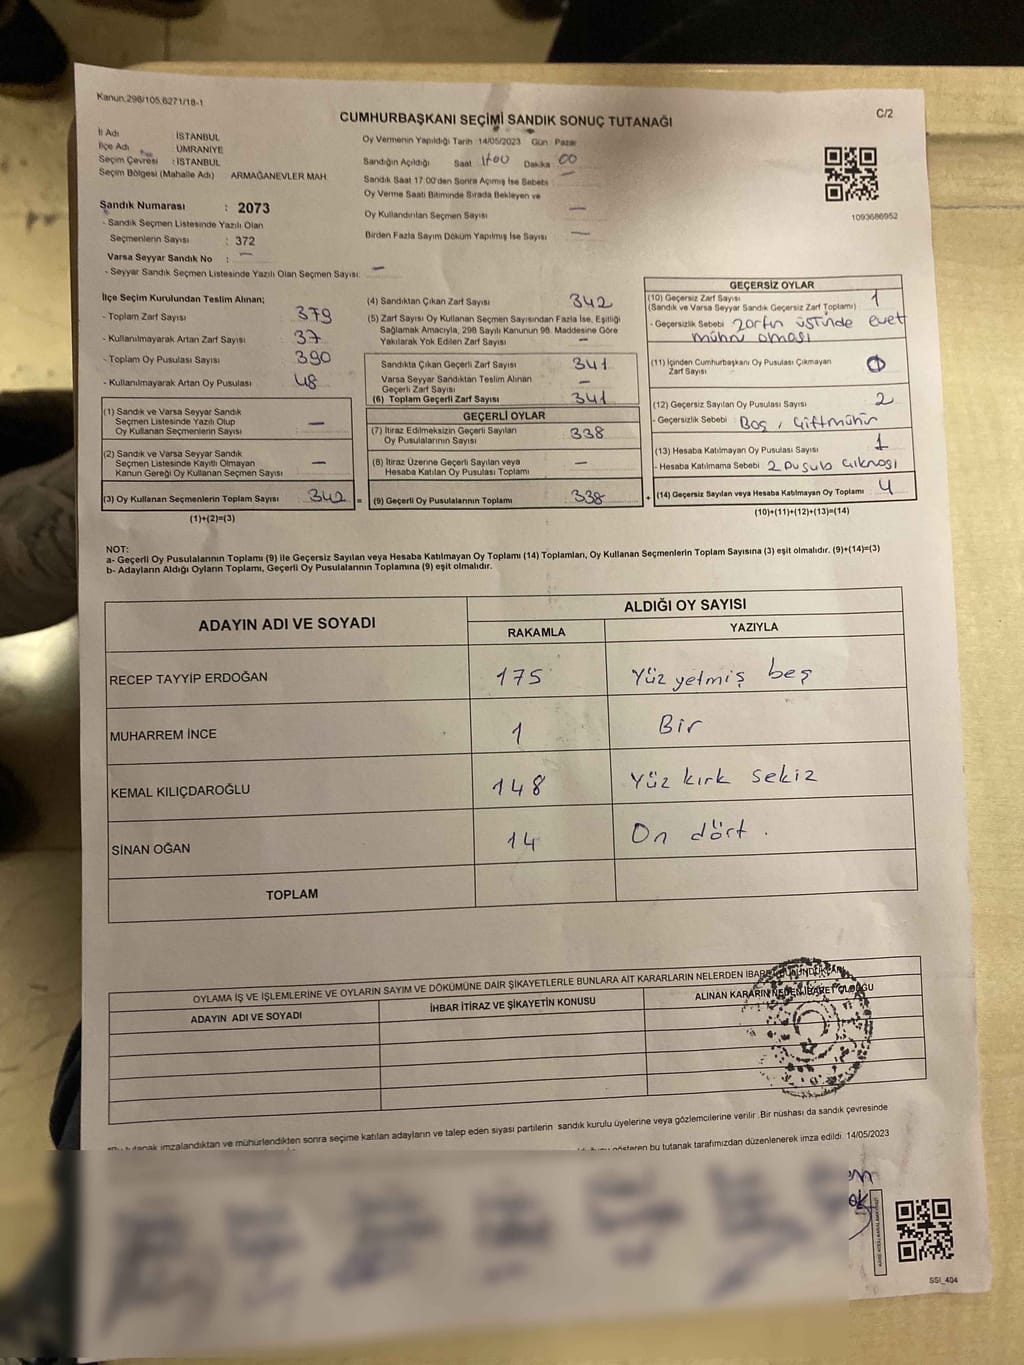 Kanun,298/105,6271/18-1
C/2
CUMHURBAŞKANI SEÇİMİ SANDIK SONUÇ TUTANAĞI
İl Adı : İSTANBUL
İlçe Adı : ÜMRANİYE
Seçim Çevresi : İSTANBUL
Seçim Bölgesi (Mahalle Adı) : ARMAĞANEVLER MAH.
Sandık Numarası : 2073
- Sandık Seçmen Listesinde Yazılı Olan
Seçmenlerin Sayısı : 372
Varsa Seyyar Sandık No : —
- Seyyar Sandık Seçmen Listesinde Yazılı Olan Seçmen Sayısı: —
Oy Vermenin Yapıldığı Tarih 14/05/2023 Gün : Pazar
Sandığın Açıldığı Saat 1700 Dakika 00
Sandık Saat 17:00'den Sonra Açımış İse Sebebi : —
Oy Verme Saati Bitiminde Sırada Bekleyen ve
Oy Kullandırılan Seçmen Sayısı —
Birden Fazla Sayım Döküm Yapılmış İse Sayısı —
1093686952
İlçe Seçim Kurulundan Teslim Alınan;
- Toplam Zarf Sayısı 379
- Kullanılmayarak Artan Zarf Sayısı 37
- Toplam Oy Pusulası Sayısı 390
- Kullanılmayarak Artan Oy Pusulası 48
(1) Sandık ve Varsa Seyyar Sandık
Seçmen Listesinde Yazılı Olup
Oy Kullanan Seçmenlerin Sayısı —
(2) Sandık ve Varsa Seyyar Sandık
Seçmen Listesinde Kayıtlı Olmayan
Kanun Gereği Oy Kullanan Seçmen Sayısı —
(3) Oy Kullanan Seçmenlerin Toplam Sayısı 342 =
(1)+(2)=(3)
(4) Sandıktan Çıkan Zarf Sayısı 342
(5) Zarf Sayısı Oy Kullanan Seçmen Sayısından Fazla İse, Eşitliği
Sağlamak Amacıyla, 298 Sayılı Kanunun 98. Maddesine Göre
Yakılarak Yok Edilen Zarf Sayısı —
Sandıkta Çıkan Geçerli Zarf Sayısı 341
Varsa Seyyar Sandıktan Teslim Alınan
Geçerli Zarf Sayısı —
(6) Toplam Geçerli Zarf Sayısı 341
GEÇERLİ OYLAR
(7) İtiraz Edilmeksizin Geçerli Sayılan
Oy Pusulalarının Sayısı 338
(8) İtiraz Üzerine Geçerli Sayılan veya
Hesaba Katılan Oy Pusulası Toplamı —
(9) Geçerli Oy Pusulalarının Toplamı 338 +
GEÇERSİZ OYLAR
(10) Geçersiz Zarf Sayısı 1
(Sandık ve Varsa Seyyar Sandık Geçersiz Zarf Toplamı)
- Geçersizlik Sebebi zarfın üstünde evet
mührü olması
(11) İçinden Cumhurbaşkanı Oy Pusulası Çıkmayan
Zarf Sayısı 0
(12) Geçersiz Sayılan Oy Pusulası Sayısı 2
- Geçersizlik Sebebi Boş, Çiftmühür
(13) Hesaba Katılmayan Oy Pusulası Sayısı 1
- Hesaba Katılmama Sebebi 2 pusula çıkması
(14) Geçersiz Sayılan veya Hesaba Katılmayan Oy Toplamı 4
(10)+(11)+(12)+(13)=(14)
NOT:
a- Geçerli Oy Pusulalarının Toplamı (9) ile Geçersiz Sayılan veya Hesaba Katılmayan Oy Toplamı (14) Toplamları, Oy Kullanan Seçmenlerin Toplam Sayısına (3) eşit olmalıdır. (9)+(14)=(3)
b- Adayların Aldığı Oyların Toplamı, Geçerli Oy Pusulalarının Toplamına (9) eşit olmalıdır.
ADAYIN ADI VE SOYADI
ALDIĞI OY SAYISI
RAKAMLA YAZIYLA
RECEP TAYYİP ERDOĞAN 175 Yüz yetmiş beş
MUHARREM İNCE 1 Bir
KEMAL KILIÇDAROĞLU 148 Yüz kırk sekiz
SİNAN OĞAN 14 On dört.
TOPLAM
OYLAMA İŞ VE İŞLEMLERİNE VE OYLARIN SAYIM VE DÖKÜMÜNE DAİR ŞİKAYETLERLE BUNLARA AİT KARARLARIN NELERDEN İBARET BULUNDUKLARI
ADAYIN ADI VE SOYADI İHBAR İTİRAZ VE ŞİKAYETİN KONUSU ALINAN KARARIN NEDEN İBARET OLDUĞU
tutanak imzalandıktan ve mühürlendikten sonra seçime katılan adayların ve talep eden siyasi partilerin sandık kurulu üyelerine veya gözlemcilerine verilir. Bir nüshası da sandık çevresinde
gösteren bu tutanak tarafımızdan düzenlenerek imza edildi. 14/05/2023
SSI_404